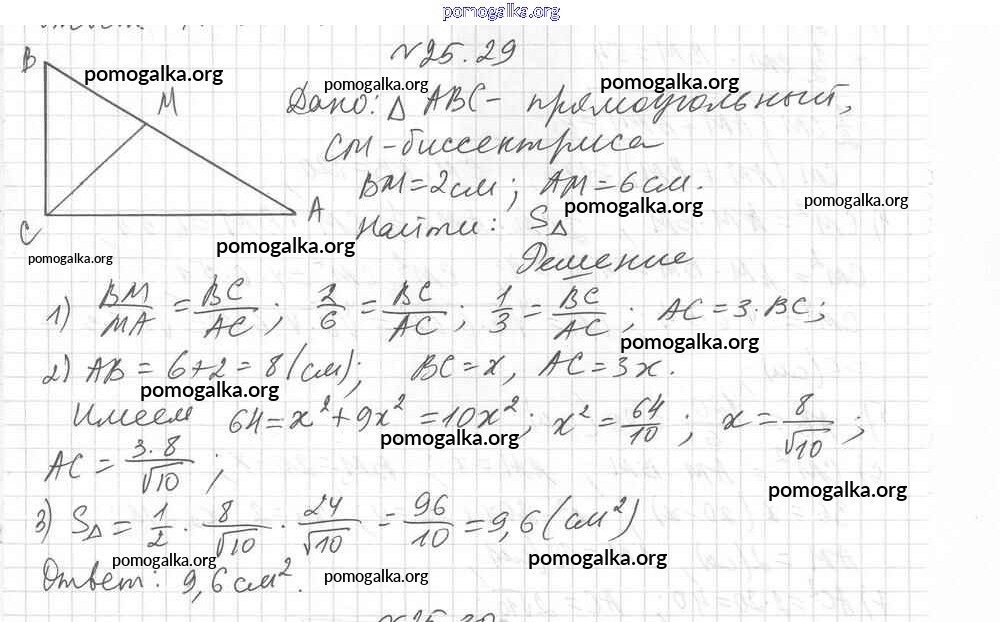 pomogalka.org
№25.29
B
pomogalka.org
pomogalka.org
pomogalka.org
M
Дано: △ ABC - прямоугольный,
CM - биссектриса
BM = 2 см; AM = 6 см.
pomogalka.org
pomogalka.org
A
C
Найти: S△
pomogalka.org
pomogalka.org
Решение
1) BM/MA = BC/AC; 2/6 = BC/AC; 1/3 = BC/AC; AC = 3·BC;
pomogalka.org
2) AB = 6+2 = 8 (см); BC = x, AC = 3x.
pomogalka.org
Имеем 64 = x² + 9x² = 10x²; x² = 64/10; x = 8/√10;
pomogalka.org
AC = 3·8/√10;
pomogalka.org
3) S△ = 1/2 · 8/√10 · 24/√10 = 96/10 = 9,6 (см²)
pomogalka.org
pomogalka.org
Ответ: 9,6 см².
pomogalka.org